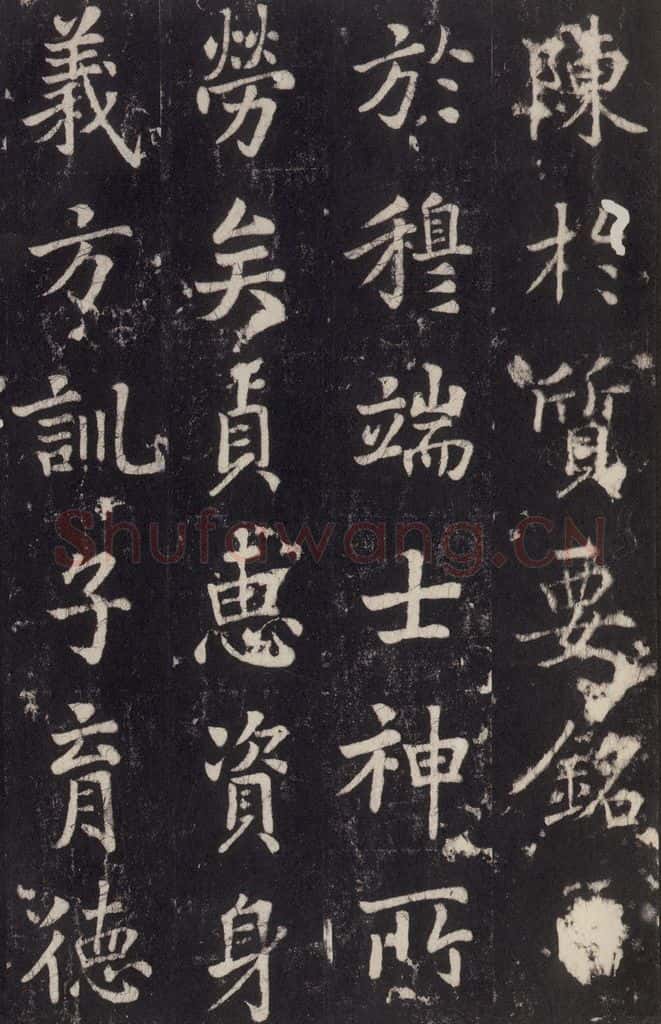 陳於質要銘
於穆端士神所
勞矣貞惠資身
義方訓子育德
Shufawang.CN